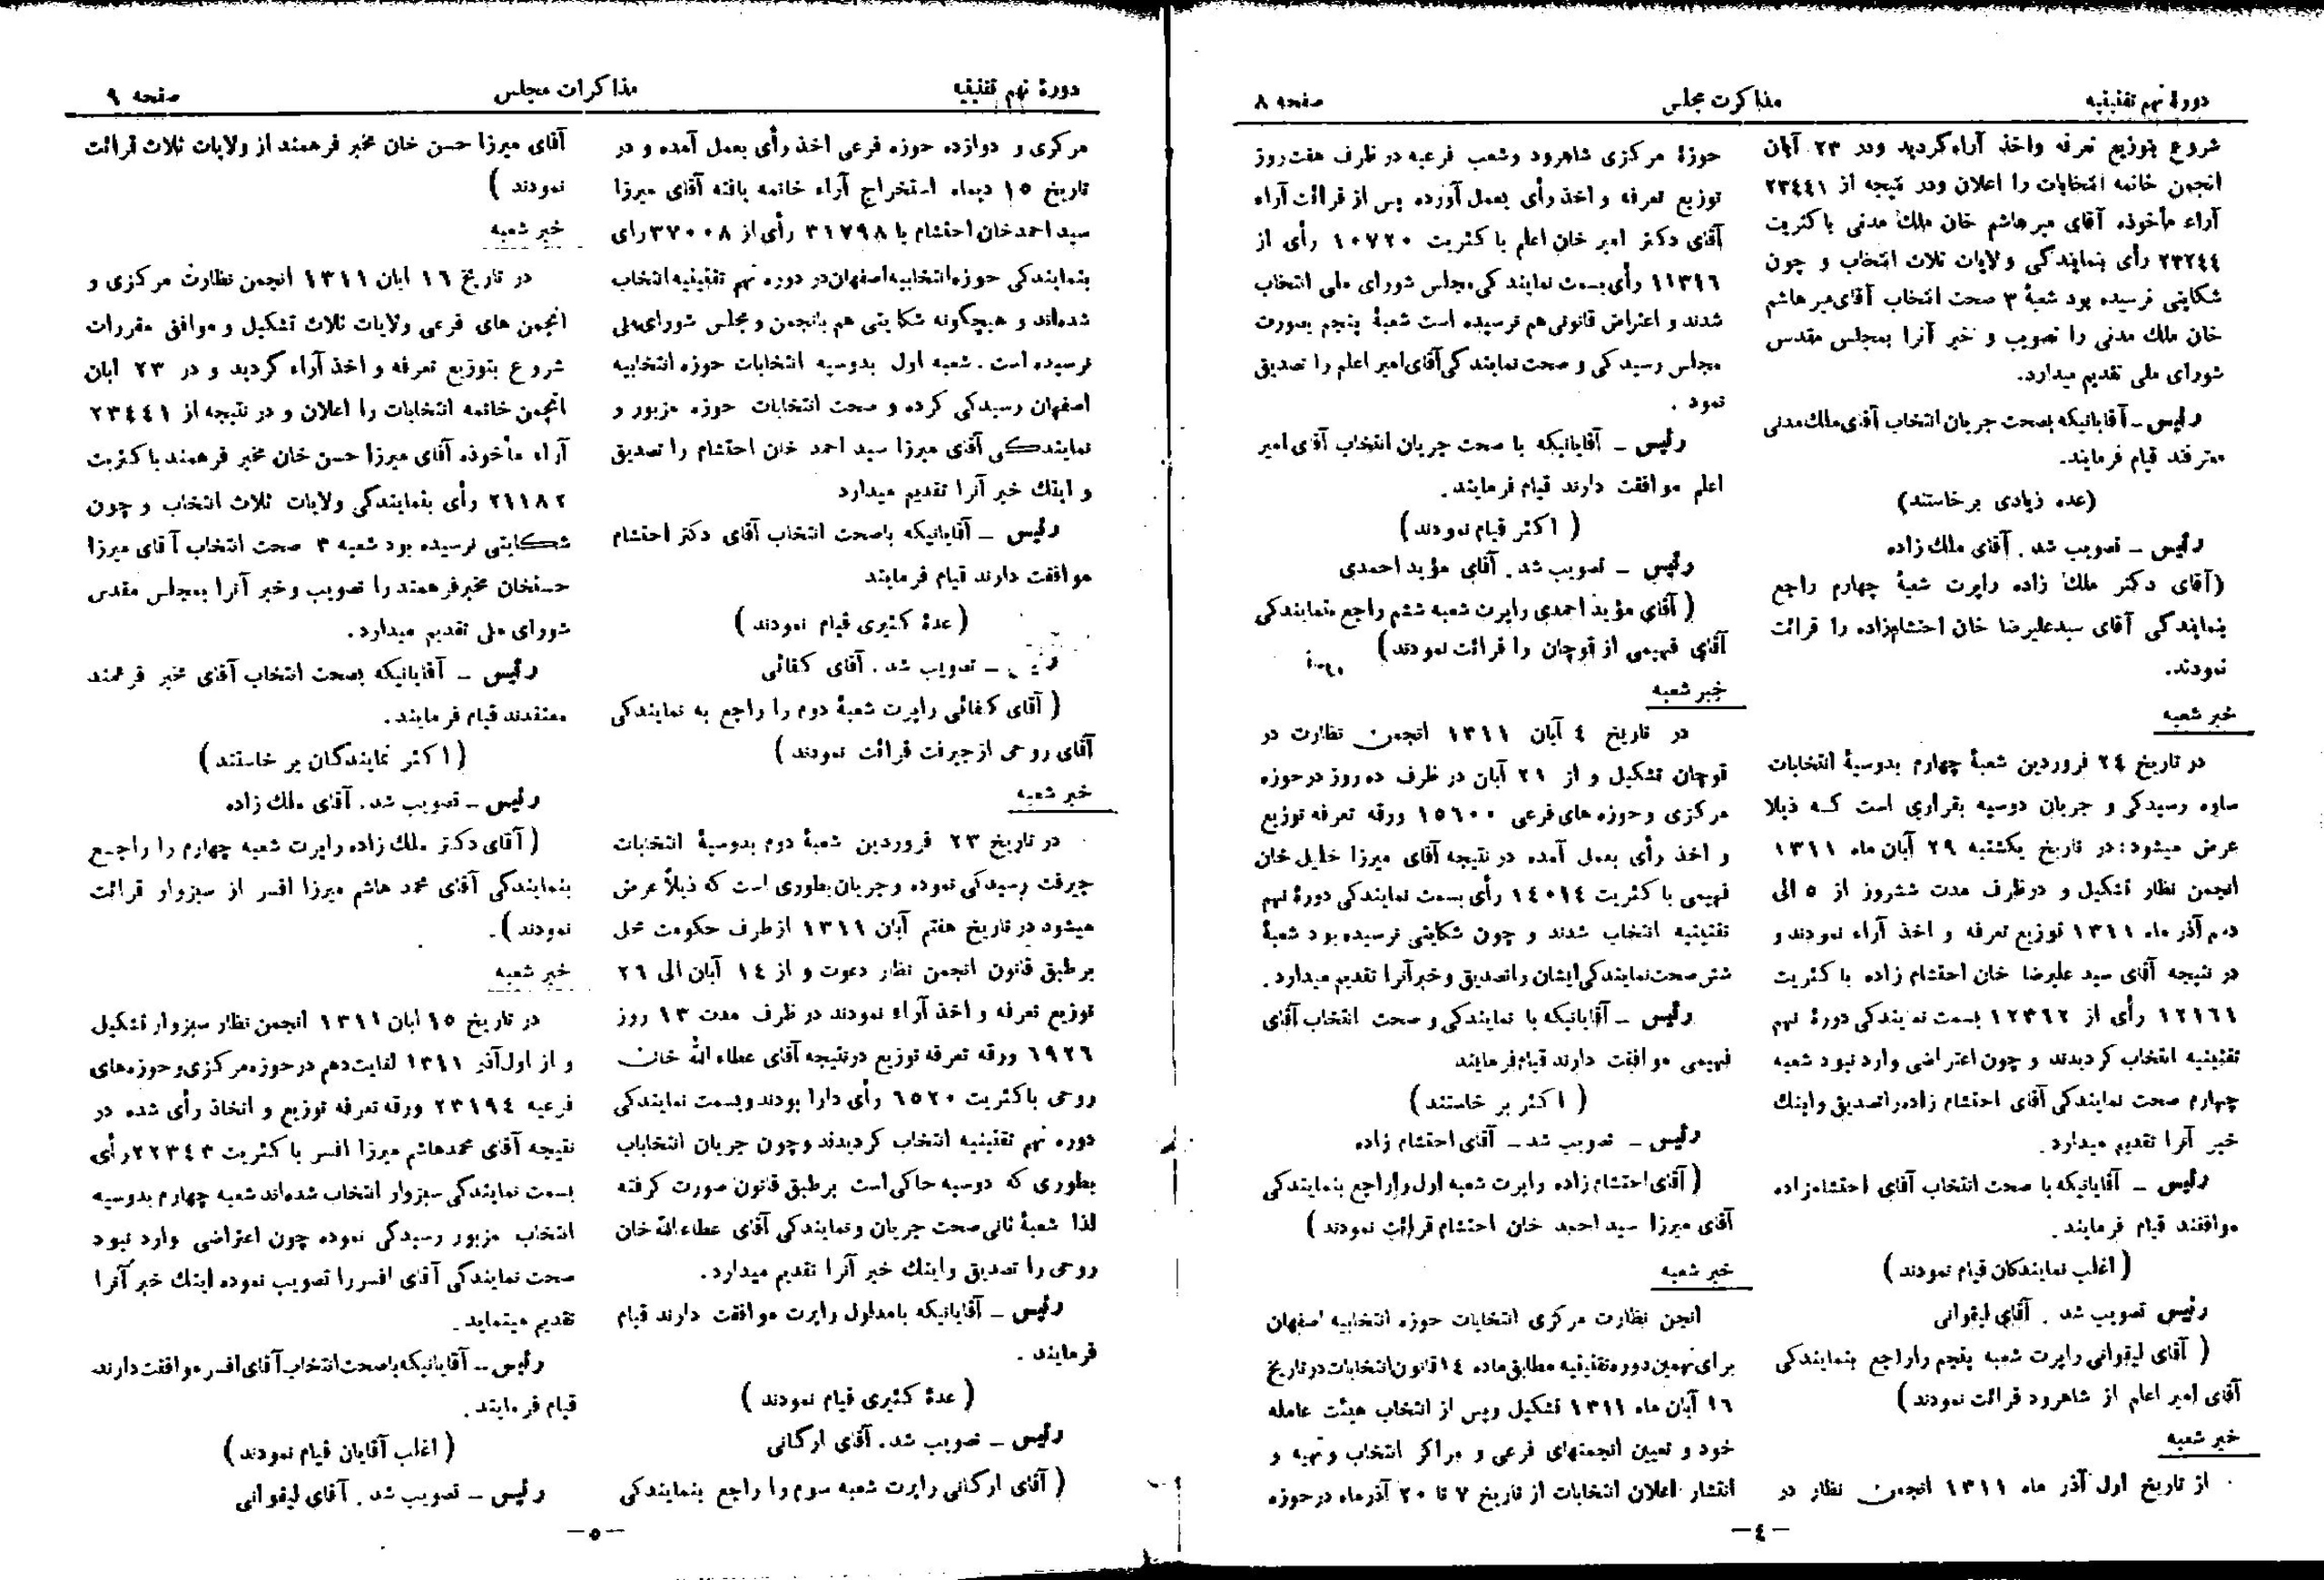 دورهٔ نهم تقنینیه
مذاکرت مجلس
صفحه ۸
شروع بتوزیع تعرفه واخذ آراء گردید ودر ۲۳ آبان
انجمن خاتمه انتخابات را اعلان ودر نتیجه از ۲۳۴۴۱
آراء مأخوذه آقای میرهاشم خان ملک مدنی باکثریت
۲۳۲۴۴ رأی بنمایندگی ولایات ثلاث انتخاب و چون
شکایتی نرسیده بود شعبهٔ ۳ صحت انتخاب آقای میر هاشم
خان ملک مدنی را تصویب و خبر آنرا بمجلس مقدس
شورای ملی تقدیم میدارد.
رئیس ــ آقایانیکه بصحت جریان انتخاب آقای ملک مدنی
معترفند قیام فرمایند.
(عده زیادی برخاستند)
رئیس ــ تصویب شد . آقای ملک زاده
(آقای دکتر ملک زاده راپرت شعبهٔ چهارم راجع
بنمایندگی آقای سیدعلیرضا خان احتشامزاده را قرائت
نمودند.
خبر شعبه
در تاریخ ۲۴ فروردین شعبهٔ چهارم بدوسیهٔ انتخابات
ساوه رسیدگی و جریان دوسیه بقراری است که ذیلا
عرض میشود: در تاریخ یکشنبه ۲۹ آبان ماه ۱۳۱۱
انجمن نظار تشکیل و درظرف مدت ششروز از ۵ الی
دهم آذر ماه ۱۳۱۱ توزیع تعرفه و اخذ آراء نمودند و
در نتیجه آقای سید علیرضا خان احتشام زاده باکثریت
۱۲۱۶۶ رأی از ۱۲۳۹۲ بسمت نمایندگی دورهٔ نهم
تقنینیه انتخاب گردیدند و چون اعتراضی وارد نبود شعبه
چهارم صحت نمایندگی آقای احتشام زاده را تصدیق واینک
خبر آنرا تقدیم میدارد.
رئیس ــ آقایانیکه با صحت انتخاب آقای احتشامزاده
موافقند قیام فرمایند.
(اغلب نمایندگان قیام نمودند)
رئیس تصویب شد . آقای لیقوانی
( آقای لیقوانی راپرت شعبه پنجم را راجع بنمایندگی
آقای امیر اعلم از شاهرود قرائت نمودند)
خبر شعبه
از تاریخ اول آذر ماه ۱۳۱۱ انجمن نظار در
حوزهٔ مرکزی شاهرود وشعب فرعیه در ظرف هفت روز
توزیع تعرفه و اخذ رأی بعمل آورده پس از قرائت آراء
آقای دکتر امیر خان اعلم باکثریت ۱۰۷۲۰ رأی از
۱۱۳۱۶ رأی بسمت نمایندگی مجلس شورای ملی انتخاب
شدند و اعتراض قانونی هم نرسیده است شعبهٔ پنجم بصورت
مجلس رسیدگی و صحت نمایندگی آقای امیر اعلم را تصدیق
نمود .
رئیس ــ آقایانیکه با صحت جریان انتخاب آقای امیر
اعلم موافقت دارند قیام فرمایند.
( اکثر قیام نمودند)
رئیس ــ تصویب شد. آقای مؤید احمدی
( آقای مؤید احمدی راپرت شعبه ششم راجع بنمایندگی
آقای فهیمی از قوچان را قرائت نمودند)
خبر شعبه
در تاریخ ۴ آبان ۱۳۱۱ انجمن نظارت در
قوچان تشکیل و از ۲۱ آبان در ظرف ده روز درحوزه
مرکزی و حوزه های فرعی ۱۵۶۰۰ ورقه تعرفه توزیع
و اخذ رأی بعمل آمده در نتیجه آقای میرزا خلیل خان
فهیمی باکثریت ۱۴۰۱۴ رأی بسمت نمایندگی دورهٔ نهم
تقنینیه انتخاب شدند و چون شکایتی نرسیده بود شعبهٔ
شش صحت نمایندگی ایشان را تصدیق و خبر آنرا تقدیم میدارد.
رئیس ــ آقایانیکه با نمایندگی و صحت انتخاب آقای
فهیمی موافقت دارند قیام فرمایند
( اکثر بر خاستند)
رئیس ــ تصویب شد ــ آقای احتشام زاده
( آقای احتشام زاده راپرت شعبه اول را راجع بنمایندگی
آقای میرزا سید احمد خان احتشام قرائت نمودند)
خبر شعبه
انجمن نظارت مرکزی انتخابات حوزه انتخابیه اصفهان
برای نهمین دوره تقنینیه مطابق ماده ۱۴ قانون انتخابات در تاریخ
۱۶ آبان ماه ۱۳۱۱ تشکیل و پس از انتخاب هیئت عامله
خود و تعیین انجمنهای فرعی و مراکز انتخاب و تهیه و
انتشار اعلان انتخابات از تاریخ ۷ تا ۲۰ آذرماه درحوزه
ــ۴ــ
دورهٔ نهم تقنینیه
مذاکرات مجلس
صفحه ۹
مرکزی و دوازده حوزه فرعی اخذ رأی بعمل آمده و در
تاریخ ۱۵ دیماه استخراج آراء خاتمه یافته آقای میرزا
سید احمدخان احتشام با ۳۱۷۹۸ رأی از ۳۷۰۰۸ رای
بنمایندگی حوزه انتخابیه اصفهان در دوره نهم تقنینیه انتخاب
شده‌اند و هیچگونه شکایتی هم بانجمن و مجلس شورای ملی
نرسیده است . شعبه اول بدوسیه انتخابات حوزه انتخابیه
اصفهان رسیدگی کرده و صحت انتخابات حوزه مزبور و
نمایندگی آقای میرزا سید احمد خان احتشام را تصدیق
و اینک خبر آنرا تقدیم میدارد
رئیس ــ آقایانیکه باصحت انتخاب آقای دکتر احتشام
موافقت دارند قیام فرمایند
(عدهٔ کثیری قیام نمودند )
ــ تصویب شد . آقای کفائی
( آقای کفائی راپرت شعبهٔ دوم را راجع به نمایندگی
آقای روحی از جیرفت قرائت نمودند )
خبر شعبه
در تاریخ ۲۳ فروردین شعبهٔ دوم بدوسیهٔ انتخابات
جیرفت رسیدگی نموده و جریان بطوری است که ذیلاً عرض
میشود در تاریخ هفتم آبان ۱۳۱۱ ازطرف حکومت محل
برطبق قانون انجمن نظار دعوت و از ۱۴ آبان الی ۲۶
توزیع تعرفه و اخذ آراء نمودند در ظرف مدت ۱۳ روز
۶۹۲۶ ورقه تعرفه توزیع درنتیجه آقای عطاءالله خان
روحی باکثریت ۶۵۲۰ رأی دارا بودند وبسمت نمایندگی
دوره نهم تقنینیه انتخاب گردیدند وچون جریان انتخابات
بطوری که دوسیه حاکی است برطبق قانون صورت گرفته
لذا شعبهٔ ثانی صحت جریان و نمایندگی آقای عطاءالله خان
روحی را تصدیق واینک خبر آنرا تقدیم میدارد.
رئیس ــ آقایانیکه بامدلول راپرت موافقت دارند قیام
فرمایند .
( عدهٔ کثیری قیام نمودند )
رئیس ــ تصویب شد. آقای ارگانی
( آقای ارگانی راپرت شعبه سوم را راجع بنمایندگی
آقای میرزا حسن خان مخبر فرهمند از ولایات ثلاث قرائت
نمودند )
خبر شعبه
در تاریخ ۱۶ ابان ۱۳۱۱ انجمن نظارت مرکزی و
انجمن های فرعی ولایات ثلاث تشکیل و موافق مقررات
شروع بتوزیع تعرفه و اخذ آراء گردید و در ۲۳ ابان
انجمن خاتمه انتخابات را اعلان و در نتیجه از ۲۳۴۴۱
آراء مأخوذه آقای میرزا حسن خان مخبر فرهمند باکثریت
۲۱۱۸۲ رأی بنمایندگی ولایات ثلاث انتخاب و چون
شکایتی نرسیده بود شعبه ۳ صحت انتخاب آقای میرزا
حسنخان مخبرفرهمند را تصویب وخبر آنرا بمجلس مقدس
شورای ملی تقدیم میدارد.
رئیس ــ آقایانیکه بصحت انتخاب آقای مخبر فرهمند
معتقدند قیام فرمایند.
( اکثر نمایندگان بر خاستند)
رئیس ــ تصویب شد. آقای ملک زاده
( آقای دکتر ملک زاده راپرت شعبه چهارم را راجع
بنمایندگی آقای محمد هاشم میرزا افسر از سبزوار قرائت
نمودند ).
خبر شعبه
در تاریخ ۱۵ ابان ۱۳۱۱ انجمن نظار سبزوار تشکیل
و از اول آذر ۱۳۱۱ لغایت دهم درحوزه مرکزی و حوزه های
فرعیه ۲۳۱۹۴ ورقه تعرفه توزیع و اتخاذ رأی شده در
نتیجه آقای محمدهاشم میرزا افسر باکثریت ۲۲۳۴۳ رأی
بسمت نمایندگی سبزوار انتخاب شده‌اند شعبه چهارم بدوسیه
انتخاب مزبور رسیدگی نموده چون اعتراضی وارد نبود
صحت نمایندگی آقای افسر را تصویب نموده اینک خبر آنرا
تقدیم مینماید.
رئیس ــ آقایانیکه باصحت انتخاب آقای افسر موافقت دارند
قیام فرمایند.
( اغلب آقایان قیام نمودند)
رئیس ــ تصویب شد . آقای لیقوانی
ــ۵ــ